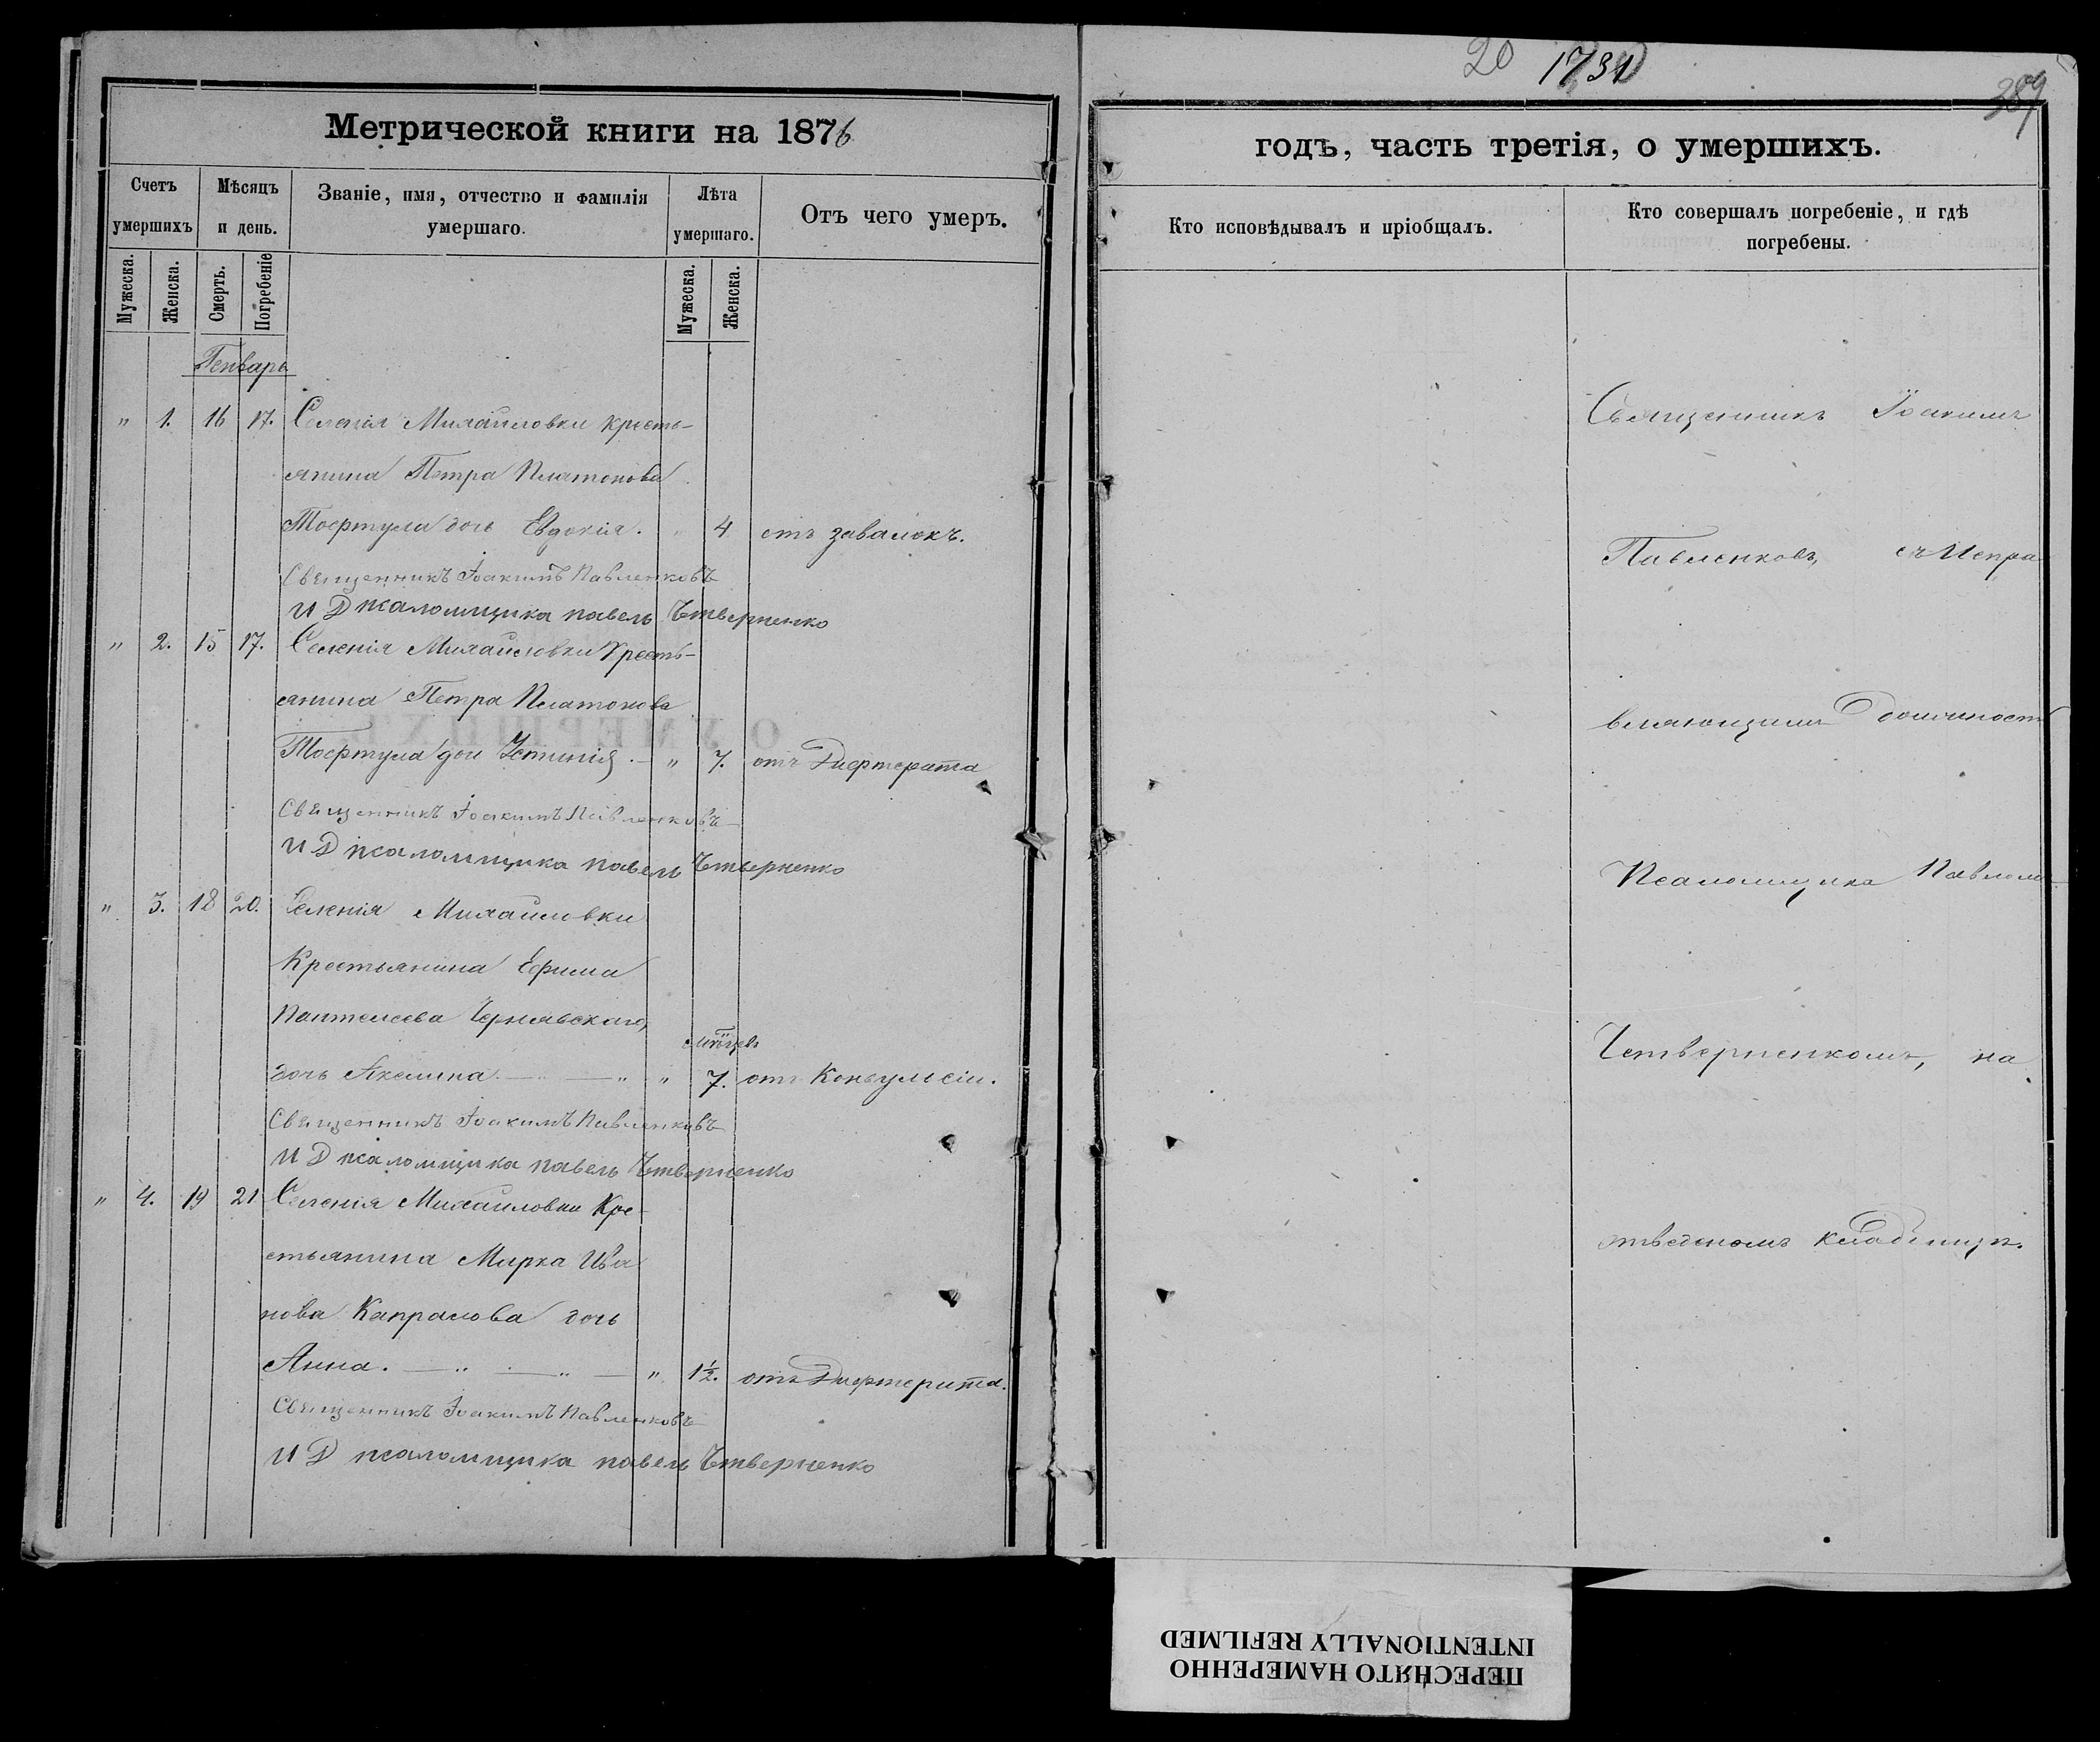 20 1731
389
Метрической книги на 1876
годъ, часть третія, о умершихъ.
Счетъ умершихъ
Мѣсяцъ и день.
Званіе, имя, отчество и фамилія умершаго.
Лѣта умершаго.
Отъ чего умеръ.
Кто исповѣдывалъ и пріобщалъ.
Кто совершалъ погребеніе, и гдѣ погребены.
Мужеска. Женска. Смерть. Погребеніе Мужеска. Женска.
Генварь
" 1. 16 17. Селенія Михайловки кресть-
янина Петра Платонова
дочь Евдокія. " 4 отъ завалокъ.
Священникъ Іоакимъ Павленковъ
И Д псаломщика павелъ Четверненко
" 2. 15 17. Селенія Михайловки Кресть-
янина Петра Платонова
дочь Устинія. — " 7. отъ Дифтерита
Священникъ Іоакимъ Павленковъ
И Д псаломщика павелъ Четверненко
" 3. 18 20. Селенія Михайловки
Крестьянина Ефима
Пантелеева Чернявскаго,
мѣсяцевъ
дочь Акелина. — " — " " 7. отъ Конвульсіи.
Священникъ Іоакимъ Павленковъ
И Д псаломщика павелъ Четверненко
" 4. 19 21 Селенія Михайловки Кре-
стьянина Марка Ива
нова Капралова дочь
Анна. — " — " — " 1½. отъ Дифтерита.
Священникъ Іоакимъ Павленковъ
И Д псаломщика павелъ Четверненко
Священникъ Іоакимъ
Павленковъ, съ Испра
вляющимъ должность
Псаломщика Павломъ
Четверненкомъ, на
отведеномъ кладбищѣ.
ПЕРЕСНЯТО НАМЕРЕННО
INTENTIONALLY REFILMED